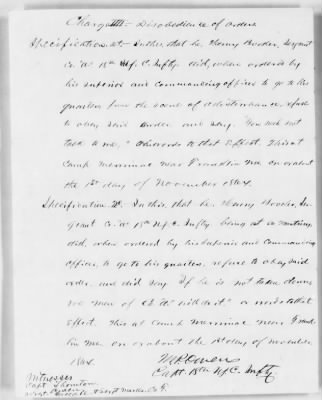 Charge III – Disobedience of Orders
Specification 1st – In this, that he, Henry Sergeant
Co. "A" 15th U.S.C. Infty. did, when ordered by
his superior and commanding officer to go to his
quarters from the scene of a disturbance, refuse
to obey said order and say. "You need not
talk to me," or words to that effect. This at
Camp near Franklin on or about
the 1st day of November 1864.
Specification 2d. In this, that he, Henry Ser-
geant Co. "A" 15th U.S.C. Infty, being at a mutiny,
did, when ordered by his superior and Commanding
officer to go to his quarters, refuse to obey said
order, and did say If he is not taken down,
we men of Co. "A" will do it" or words to that
effect. This at Camp near Frank-
lin on or about the 1st day of November
1864.
Capt. 15th U.S.C. Infty.
Witnesses
Capt Thornton